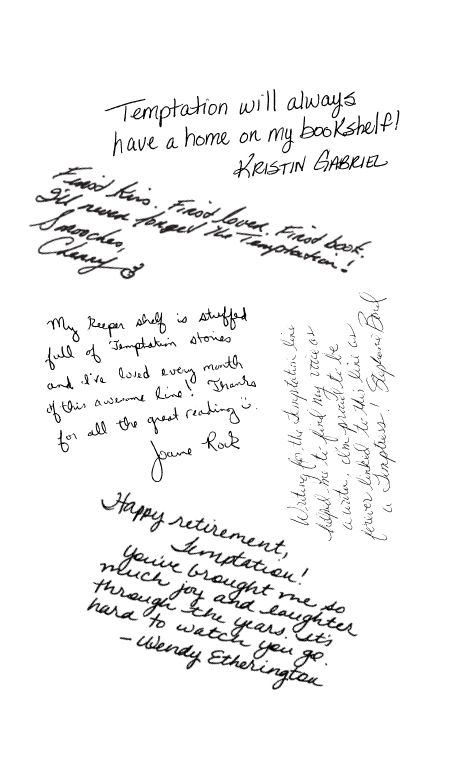 Temptation will always
have a home on my bookshelf!
KRISTIN GABRIEL
First kiss. First lover. First book.
I'll never forget the Temptation!
Smooches,
Cherry
My keeper shelf is stuffed
full of Temptation stories
and I've loved every month
of this awesome line! Thanks
for all the great reading
Joanne Rock
Writing for the Temptation line
helped me to find my voice as
a writer. I'm proud to be
forever linked to this line as
a Temptress! Stephanie Bond
Happy retirement,
Temptation!
You've brought me so
much joy and laughter
through the years. It's
hard to watch you go.
– Wendy Etherington